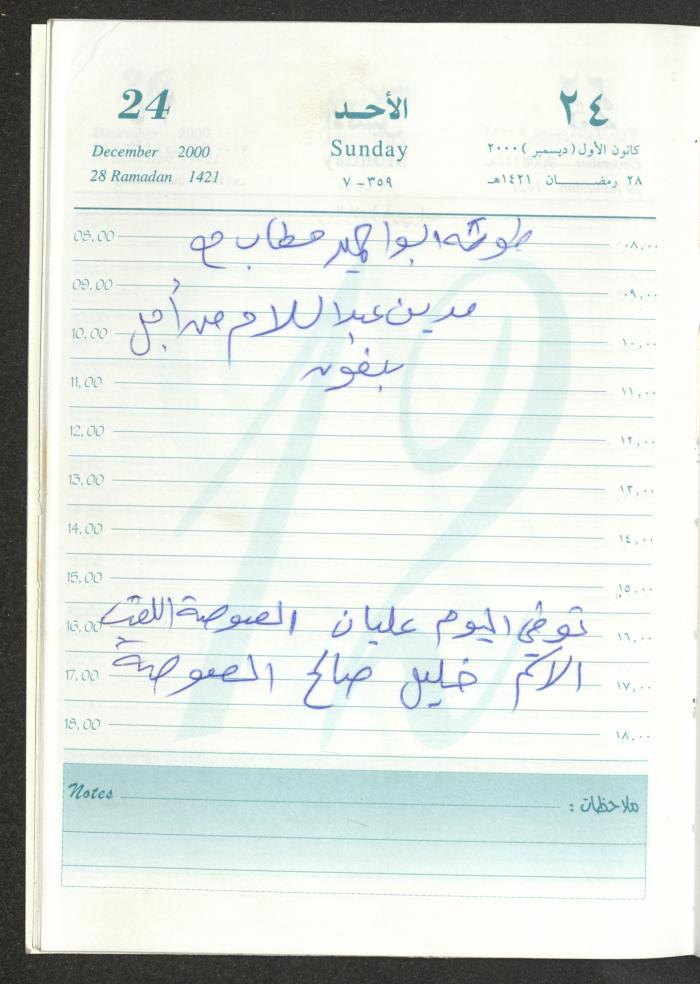 24 الأحد ٢٤
December 2000 Sunday كانون الأول (ديسمبر) ٢٠٠٠
28 Ramadan 1421 ٣٥٩-٧ ٢٨ رمضان ١٤٢١هـ
08,00 ٠٨,٠٠
طوشه ابو احميد حطاب مع
09,00 ٠٩,٠٠
مدين عبد السلام من أجل
10,00 ١٠,٠٠
11,00 ١١,٠٠
12,00 ١٢,٠٠
13,00 ١٣,٠٠
14,00 ١٤,٠٠
15,00 ١٥,٠٠
توفي اليوم عليان الصوصة اللقب
16,00 ١٦,٠٠
الاسم خليل صالح الصوصة
17,00 ١٧,٠٠
18,00 ١٨,٠٠
Notes ملاحظات :